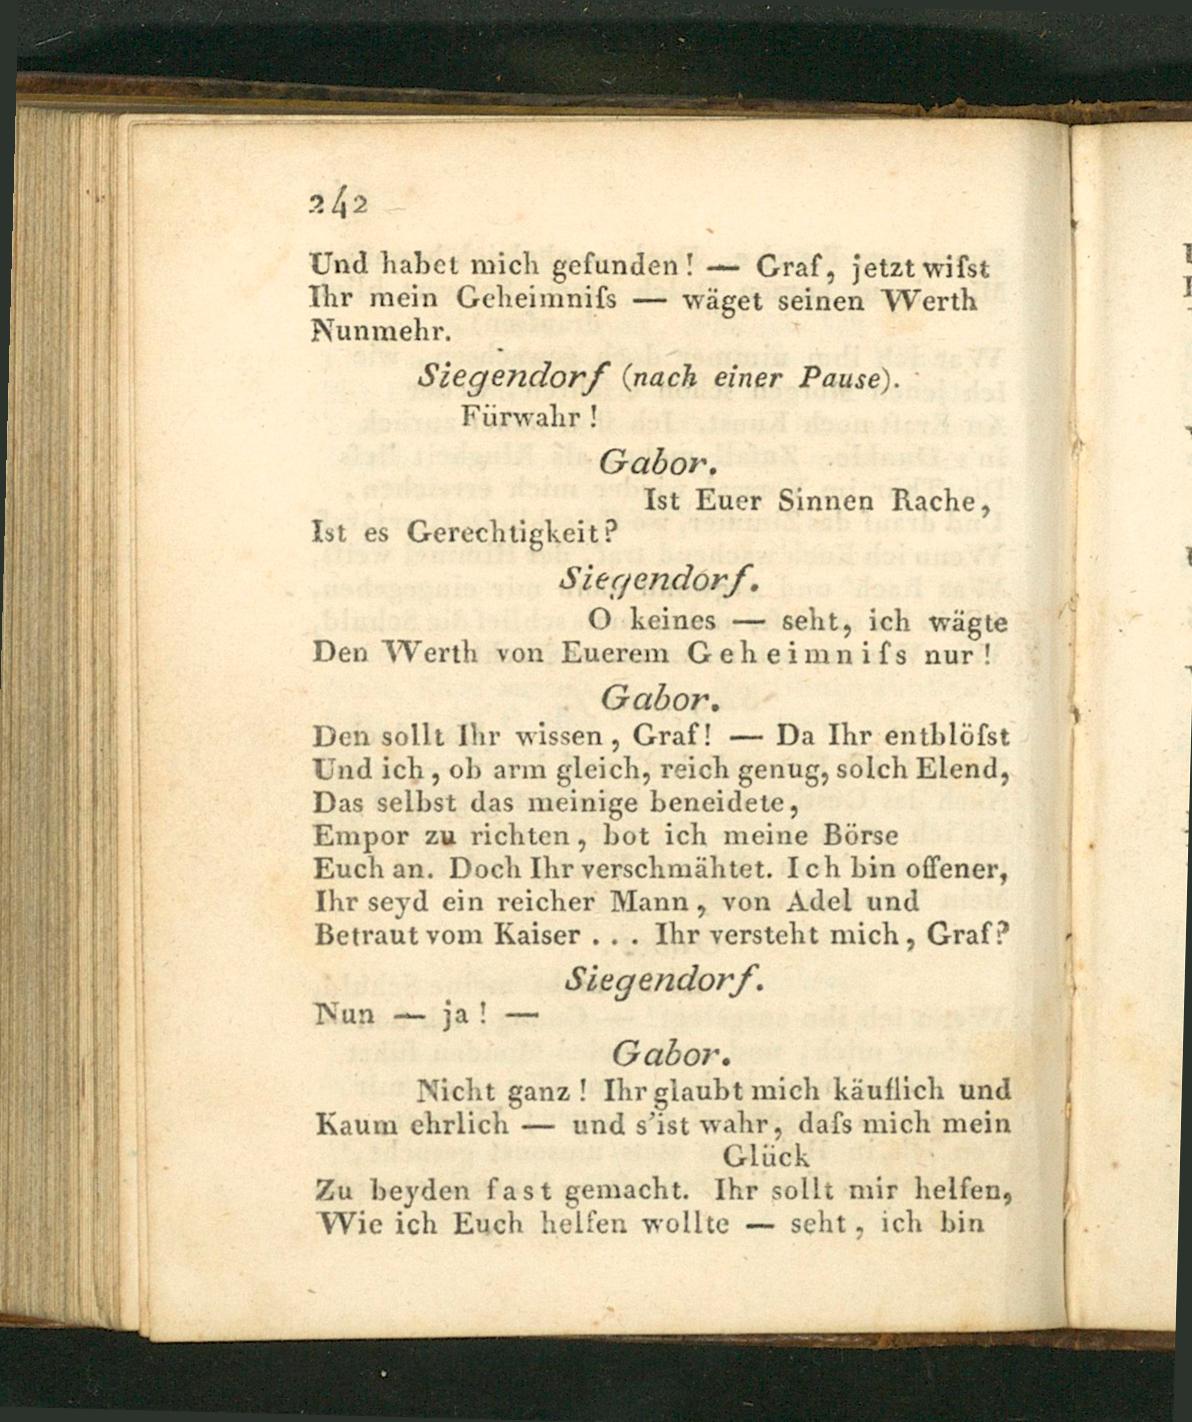 242
Und habet mich gefunden! — Graf, jetzt wiſst
Ihr mein Geheimniſs — wäget seinen Werth
Nunmehr.
Siegendorf (nach einer Pause).
Fürwahr!
Gabor.
Ist Euer Sinnen Rache,
Ist es Gerechtigkeit?
Siegendorf.
O keines — seht, ich wägte
Den Werth von Euerem Geheimniſs nur!
Gabor.
Den sollt Ihr wissen, Graf! — Da Ihr entblöſst
Und ich, ob arm gleich, reich genug, solch Elend,
Das selbst das meinige beneidete,
Empor zu richten, bot ich meine Börse
Euch an. Doch Ihr verschmähtet. Ich bin offener,
Ihr seyd ein reicher Mann, von Adel und
Betraut vom Kaiser . . . Ihr versteht mich, Graf?
Siegendorf.
Nun — ja! —
Gabor.
Nicht ganz! Ihr glaubt mich käuflich und
Kaum ehrlich — und s'ist wahr, daſs mich mein
Glück
Zu beyden fast gemacht. Ihr sollt mir helfen,
Wie ich Euch helfen wollte — seht, ich bin